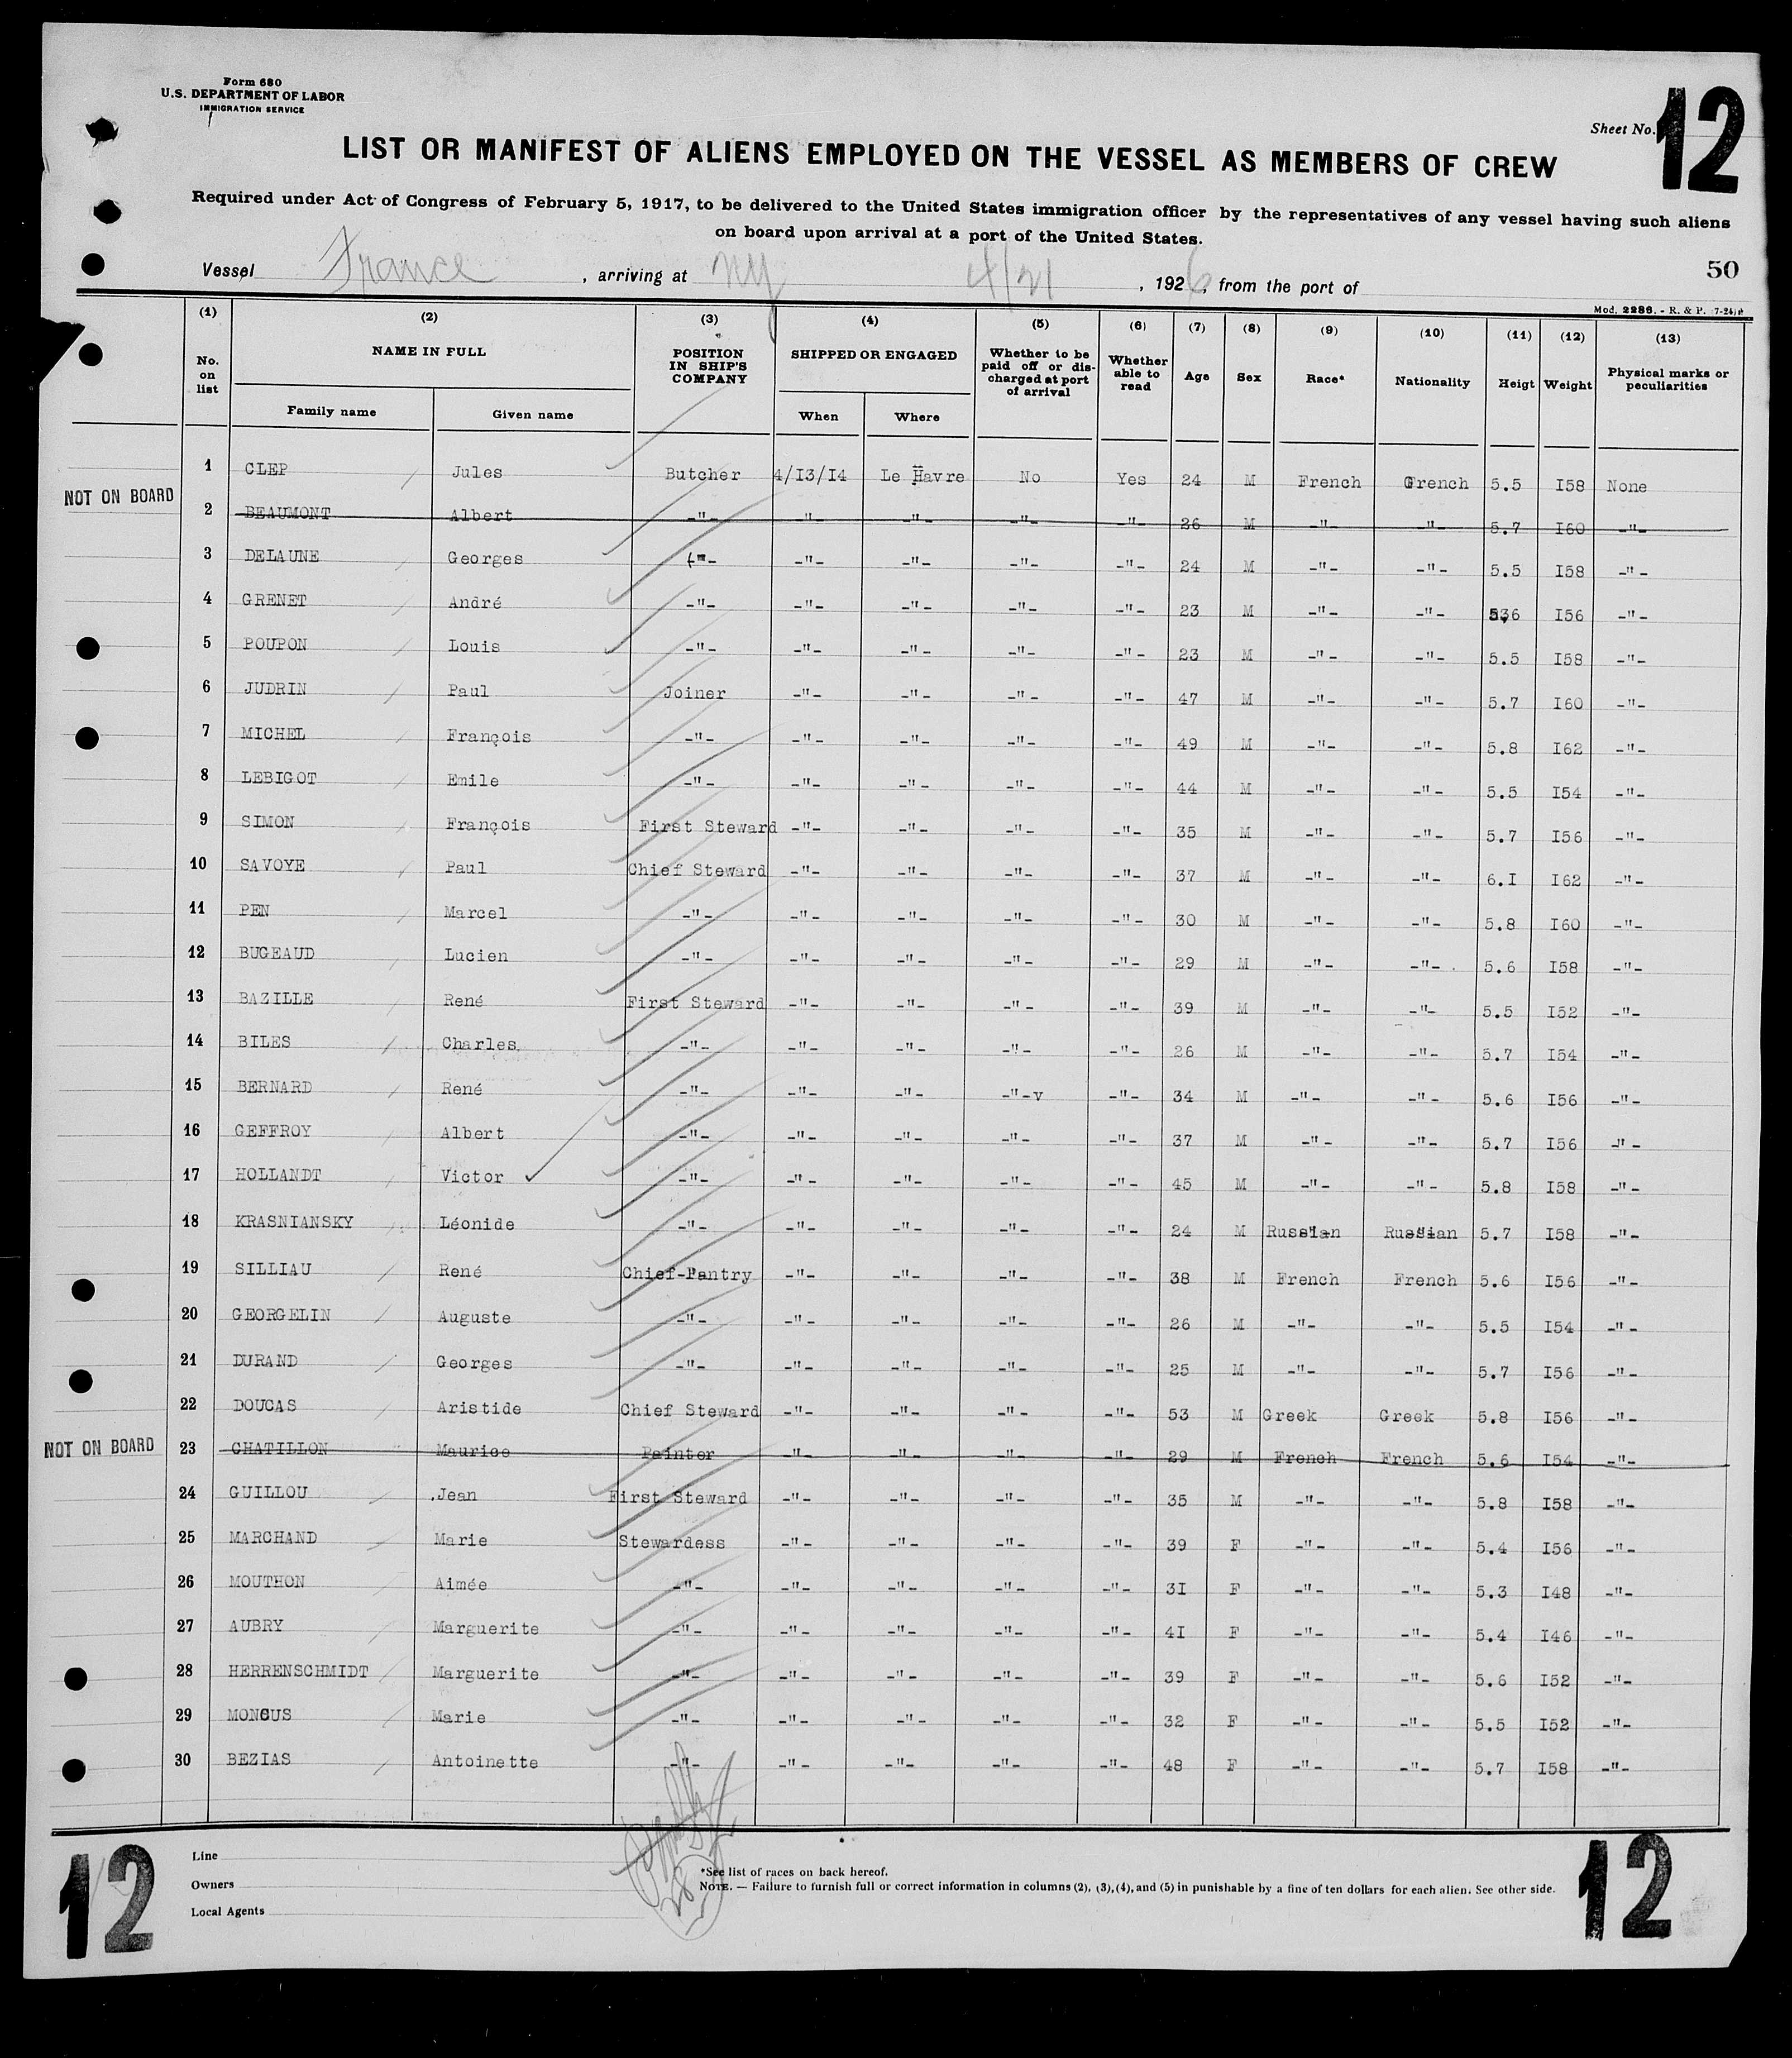 Form 680
U.S. DEPARTMENT OF LABOR
IMMIGRATION SERVICE
Sheet No. 12
LIST OR MANIFEST OF ALIENS EMPLOYED ON THE VESSEL AS MEMBERS OF CREW
Required under Act of Congress of February 5, 1917, to be delivered to the United States immigration officer by the representatives of any vessel having such aliens
on board upon arrival at a port of the United States.
50
Vessel France , arriving at NY 4/21 , 1926, from the port of
Mod. 2286. - R. & P. (7-24)
(1) (2) (3) (4) (5) (6) (7) (8) (9) (10) (11) (12) (13)
No. on list NAME IN FULL Family name Given name POSITION IN SHIP'S COMPANY SHIPPED OR ENGAGED When Where Whether to be paid off or discharged at port of arrival Whether able to read Age Sex Race* Nationality Heigt Weight Physical marks or peculiarities
1 CLEP Jules Butcher 4/I3/I4 Le Havre No Yes 24 M French French 5.5 I58 None
NOT ON BOARD
2 BEAUMONT Albert -"- -"- -"- -"- -"- 26 M -"- -"- 5.7 I60 -"-
3 DELAUNE Georges -"- -"- -"- -"- -"- 24 M -"- -"- 5.5 I58 -"-
4 GRENET André -"- -"- -"- -"- -"- 23 M -"- -"- 5.6 I56 -"-
5 POUPON Louis -"- -"- -"- -"- -"- 23 M -"- -"- 5.5 I58 -"-
6 JUDRIN Paul Joiner -"- -"- -"- -"- 47 M -"- -"- 5.7 I60 -"-
7 MICHEL François -"- -"- -"- -"- -"- 49 M -"- -"- 5.8 I62 -"-
8 LEBIGOT Emile -"- -"- -"- -"- -"- 44 M -"- -"- 5.5 I54 -"-
9 SIMON François First Steward -"- -"- -"- -"- 35 M -"- -"- 5.7 I56 -"-
10 SAVOYE Paul Chief Steward -"- -"- -"- -"- 37 M -"- -"- 6.I I62 -"-
11 PEN Marcel -"- -"- -"- -"- -"- 30 M -"- -"- 5.8 I60 -"-
12 BUGEAUD Lucien -"- -"- -"- -"- -"- 29 M -"- -"- 5.6 I58 -"-
13 BAZILLE René First Steward -"- -"- -"- -"- 39 M -"- -"- 5.5 I52 -"-
14 BILES Charles -"- -"- -"- -"- -"- 26 M -"- -"- 5.7 I54 -"-
15 BERNARD René -"- -"- -"- -"-v -"- 34 M -"- -"- 5.6 I56 -"-
16 GEFFROY Albert -"- -"- -"- -"- -"- 37 M -"- -"- 5.7 I56 -"-
17 HOLLANDT Victor -"- -"- -"- -"- -"- 45 M -"- -"- 5.8 I58 -"-
18 KRASNIANSKY Léonide -"- -"- -"- -"- -"- 24 M Russian Russian 5.7 I58 -"-
19 SILLIAU René Chief-Pantry -"- -"- -"- -"- 38 M French French 5.6 I56 -"-
20 GEORGELIN Auguste -"- -"- -"- -"- -"- 26 M -"- -"- 5.5 I54 -"-
21 DURAND Georges -"- -"- -"- -"- -"- 25 M -"- -"- 5.7 I56 -"-
22 DOUCAS Aristide Chief Steward -"- -"- -"- -"- 53 M Greek Greek 5.8 I56 -"-
NOT ON BOARD 23 CHATILLON Maurice Painter -"- -"- -"- -"- 29 M French French 5.6 I54 -"-
24 GUILLOU Jean First Steward -"- -"- -"- -"- 35 M -"- -"- 5.8 I58 -"-
25 MARCHAND Marie Stewardess -"- -"- -"- -"- 39 F -"- -"- 5.4 I56 -"-
26 MOUTHON Aimée -"- -"- -"- -"- -"- 3I F -"- -"- 5.3 I48 -"-
27 AUBRY Marguerite -"- -"- -"- -"- -"- 4I F -"- -"- 5.4 I46 -"-
28 HERRENSCHMIDT Marguerite -"- -"- -"- -"- -"- 39 F -"- -"- 5.6 I52 -"-
29 MONCUS Marie -"- -"- -"- -"- -"- 32 F -"- -"- 5.5 I52 -"-
30 BEZIAS Antoinette -"- -"- -"- -"- -"- 48 F -"- -"- 5.7 I58 -"-
12
12
Line
Owners
Local Agents
28
*See list of races on back hereof.
NOTE. — Failure to furnish full or correct information in columns (2), (3), (4), and (5) in punishable by a fine of ten dollars for each alien. See other side.